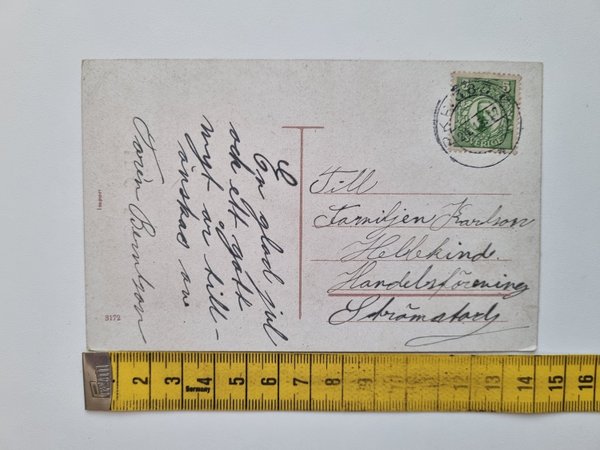 En glad jul
och ett gott
nytt år till-
önskas av
Torin Berntson
Till
Familjen Karlson
Hellekind.
Handelsförening
Strömatorp
Import
3172
2 3 4 5 6 7 8 9 10 11 12 13 14 15 16
Germany